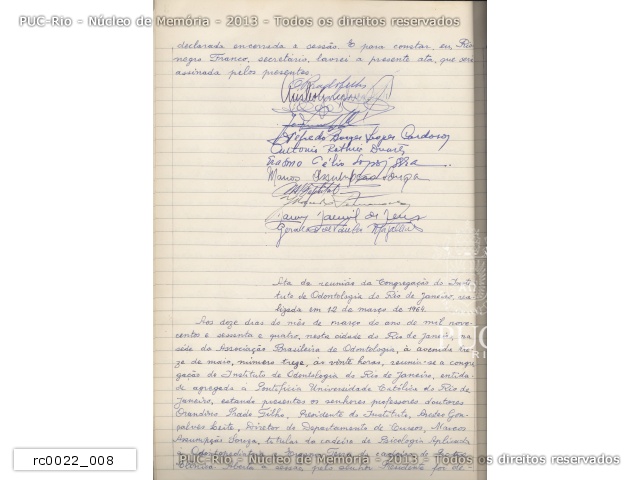 PUC-Rio - Núcleo de Memória - 2013 - Todos os direitos reservados
declarada encerrada a sessão. E para constar, eu, Rio
negro Franco, secretário, lavrei a presente ata, que será
assinada pelos presentes.
Alfredo Borges Lopes Cardoso
Antonio Rothier Duarte
Marcos Assumpção Souza
Ata da reunião da Congregação do Insti
tuto de Odontologia do Rio de Janeiro, rea
lizada em 12 de março de 1964.
Aos doze dias do mês de março do ano de mil nove
centos e sessenta e quatro, nesta cidade do Rio de Janeiro, na
séde da Associação Brasileira de Odontologia, à avenida tre
ze de maio, número treze, às vinte horas, reuniu-se a congre
gação do Instituto de Odontologia do Rio de Janeiro, entida
de agregada à Pontifícia Universidade Católica do Rio de
Janeiro, estando presentes os senhores professores doutores
Prado Filho, Presidente do Instituto, Gon
çalves Leite, Diretor de Departamento de Cursos, Marcos
Assumpção Souza, titular da cadeira de Psicologia Aplicada
a sessão pelo senhor Presidente foi
rc0022_008
PUC-Rio - Núcleo de Memória - 2013 - Todos os direitos reservados